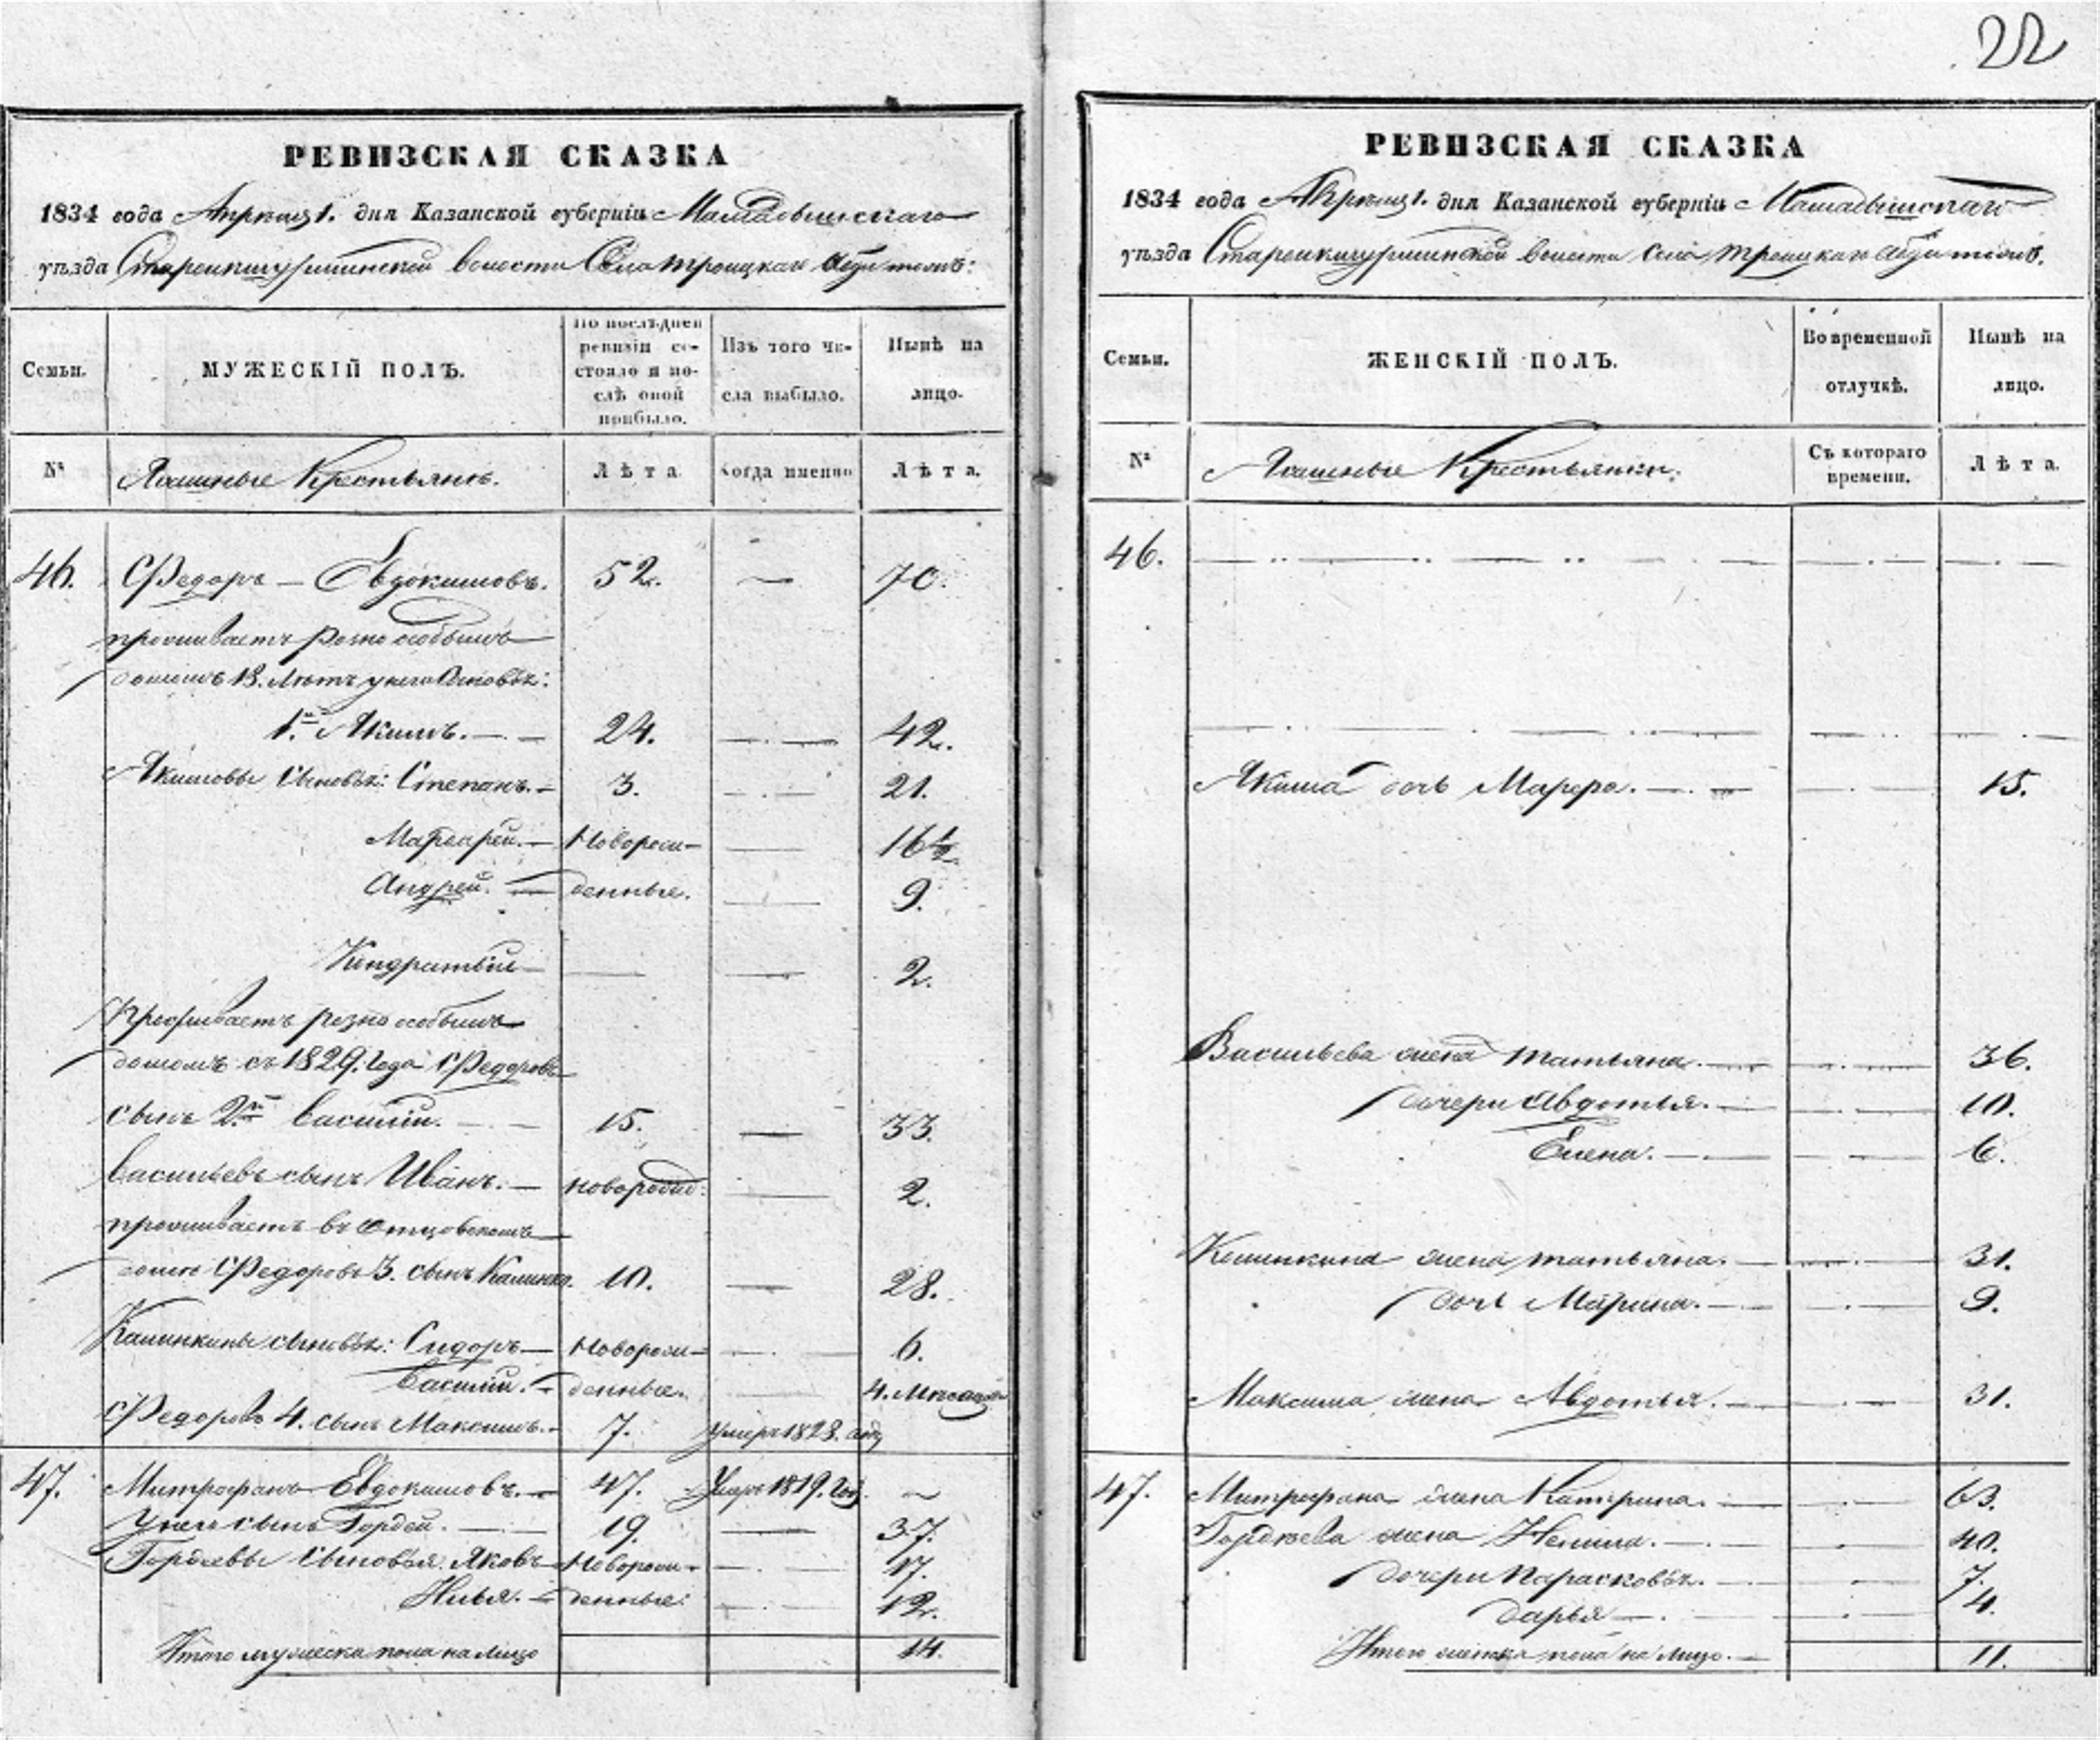 22
РЕВИЗСКАЯ СКАЗКА
1834 года Апреля 1. дня Казанской губерніи Мамадышскаго
уѣзда Старошигурминской волости Села Троицкаго Абди тожъ:
Семьи.
МУЖЕСКІЙ ПОЛЪ.
По послѣдней ревизіи состояло и послѣ оной прибыло.
Изъ того числа выбыло.
Нынѣ на лицо.
№ Ясашные Крестьяне. Лѣта Когда именно Лѣта.
46. Федоръ — Евдокимовъ. 52. — 70.
проживаетъ розно особымъ
домомъ 18. лѣтъ у него Сыновья:
1й Акимъ. — 24. — 42.
Акимовы Сыновья: Степанъ. — 3. — 21.
Маркарей. — Новорож- — 16½
Андрей. — денные. — 9.
Кондратьи — — — 2.
Проживаетъ розно особымъ
домомъ съ 1829. Года Федоровъ
сынъ 2й Василій. — 15. — 33.
Васильевъ сынъ Иванъ. — новорожд: — 2.
проживаетъ въ Отцовскомъ
домѣ Федоровъ 3. сынъ Калинка. 10. — 28.
Калинкины сыновья: Сидоръ — Новорож- — 6.
Василій. — денные. — 4. Мѣсяца
Федоровъ 4. сынъ Максимъ. — 7. умеръ 1828. году
47. Митрофанъ Евдокимовъ. — 47. Умеръ 1819. Году. —
У него сынъ Гордей. — 19. — 37.
Гордеевы Сыновья Яковъ Новорож- — 17.
Илья. — денные: — 12.
Итого мужеска пола на лицо 14.
РЕВИЗСКАЯ СКАЗКА
1834 года Апреля 1. дня Казанской губерніи Мамадышскаго
уѣзда Старошигурминской волости Села Троицкаго Абди тожъ.
Семьи.
ЖЕНСКІЙ ПОЛЪ.
Во временной отлучкѣ.
Нынѣ на лицо.
№ Ясашные Крестьянки. Съ котораго времени. Лѣта.
46.
Акима дочь Марфа. — 15.
Васильева жена Татьяна. — 36.
дочери Авдотья. — 10.
Елена. — 6.
Калинкина жена татьяна. — 31.
дочь Марина. — 9.
Максима жена Авдотья. — 31.
47. Митрофана жена Катерина. — 63.
Гордѣева жена Ненила. — 40.
дочери Парасковья. — 7.
дарья — 4.
Итого женска пола на лицо. — 11.